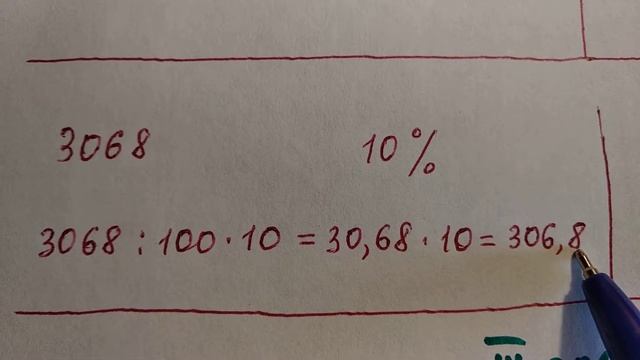 3068 10%
3068 : 100 · 10 = 30,68 · 10 = 306,8